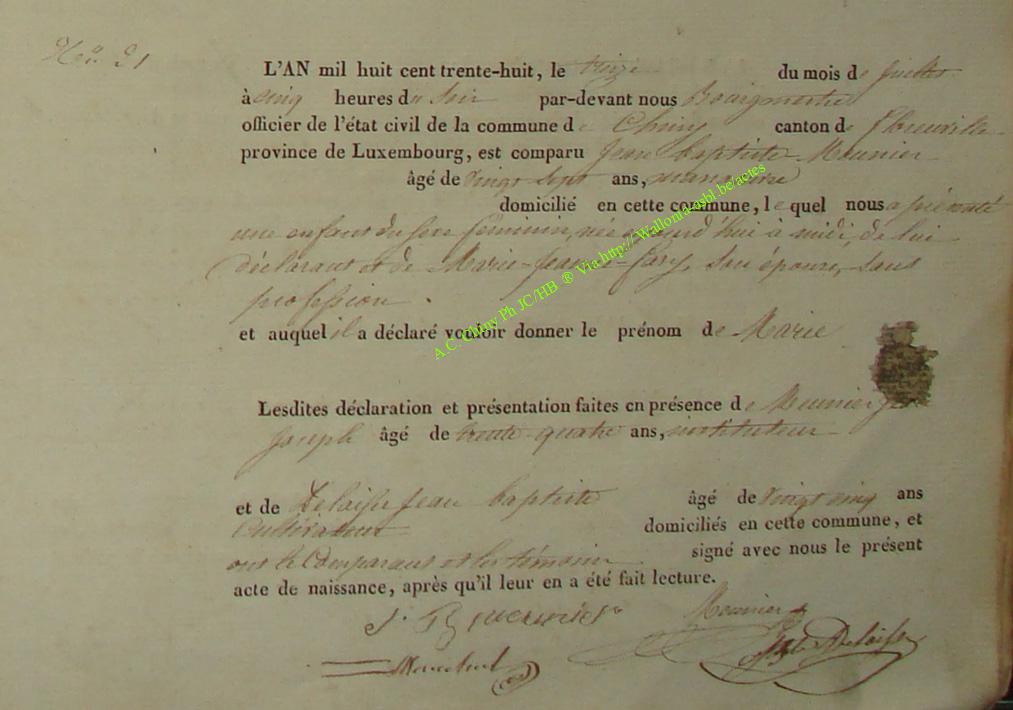 No 31
L'AN mil huit cent trente-huit, le treize du mois de juillet
à cinq heures du soir par-devant nous Bourgmestre
officier de l'état civil de la commune de Chiny canton de Florenville
province de Luxembourg, est comparu Jean baptiste Meunier
âgé de vingt sept ans, manœuvre
domicilié en cette commune, lequel nous a présenté
une enfant du sexe féminin, née aujourd'hui à midi, de lui
déclarant et de Marie-Jeanne son épouse, sans
profession.
et auquel il a déclaré vouloir donner le prénom de Marie
Lesdites déclaration et présentation faites en présence de Meunier
Joseph âgé de trente-quatre ans, instituteur
et de Delaisse Jean baptiste âgé de vingt cinq ans
Cultivateur domiciliés en cette commune, et
ont le Comparant et les témoins signé avec nous le présent
acte de naissance, après qu'il leur en a été fait lecture.
Meunier
A.C. Chiny Ph JC/HB ® Via http://Wallonia-asbl.be/actes